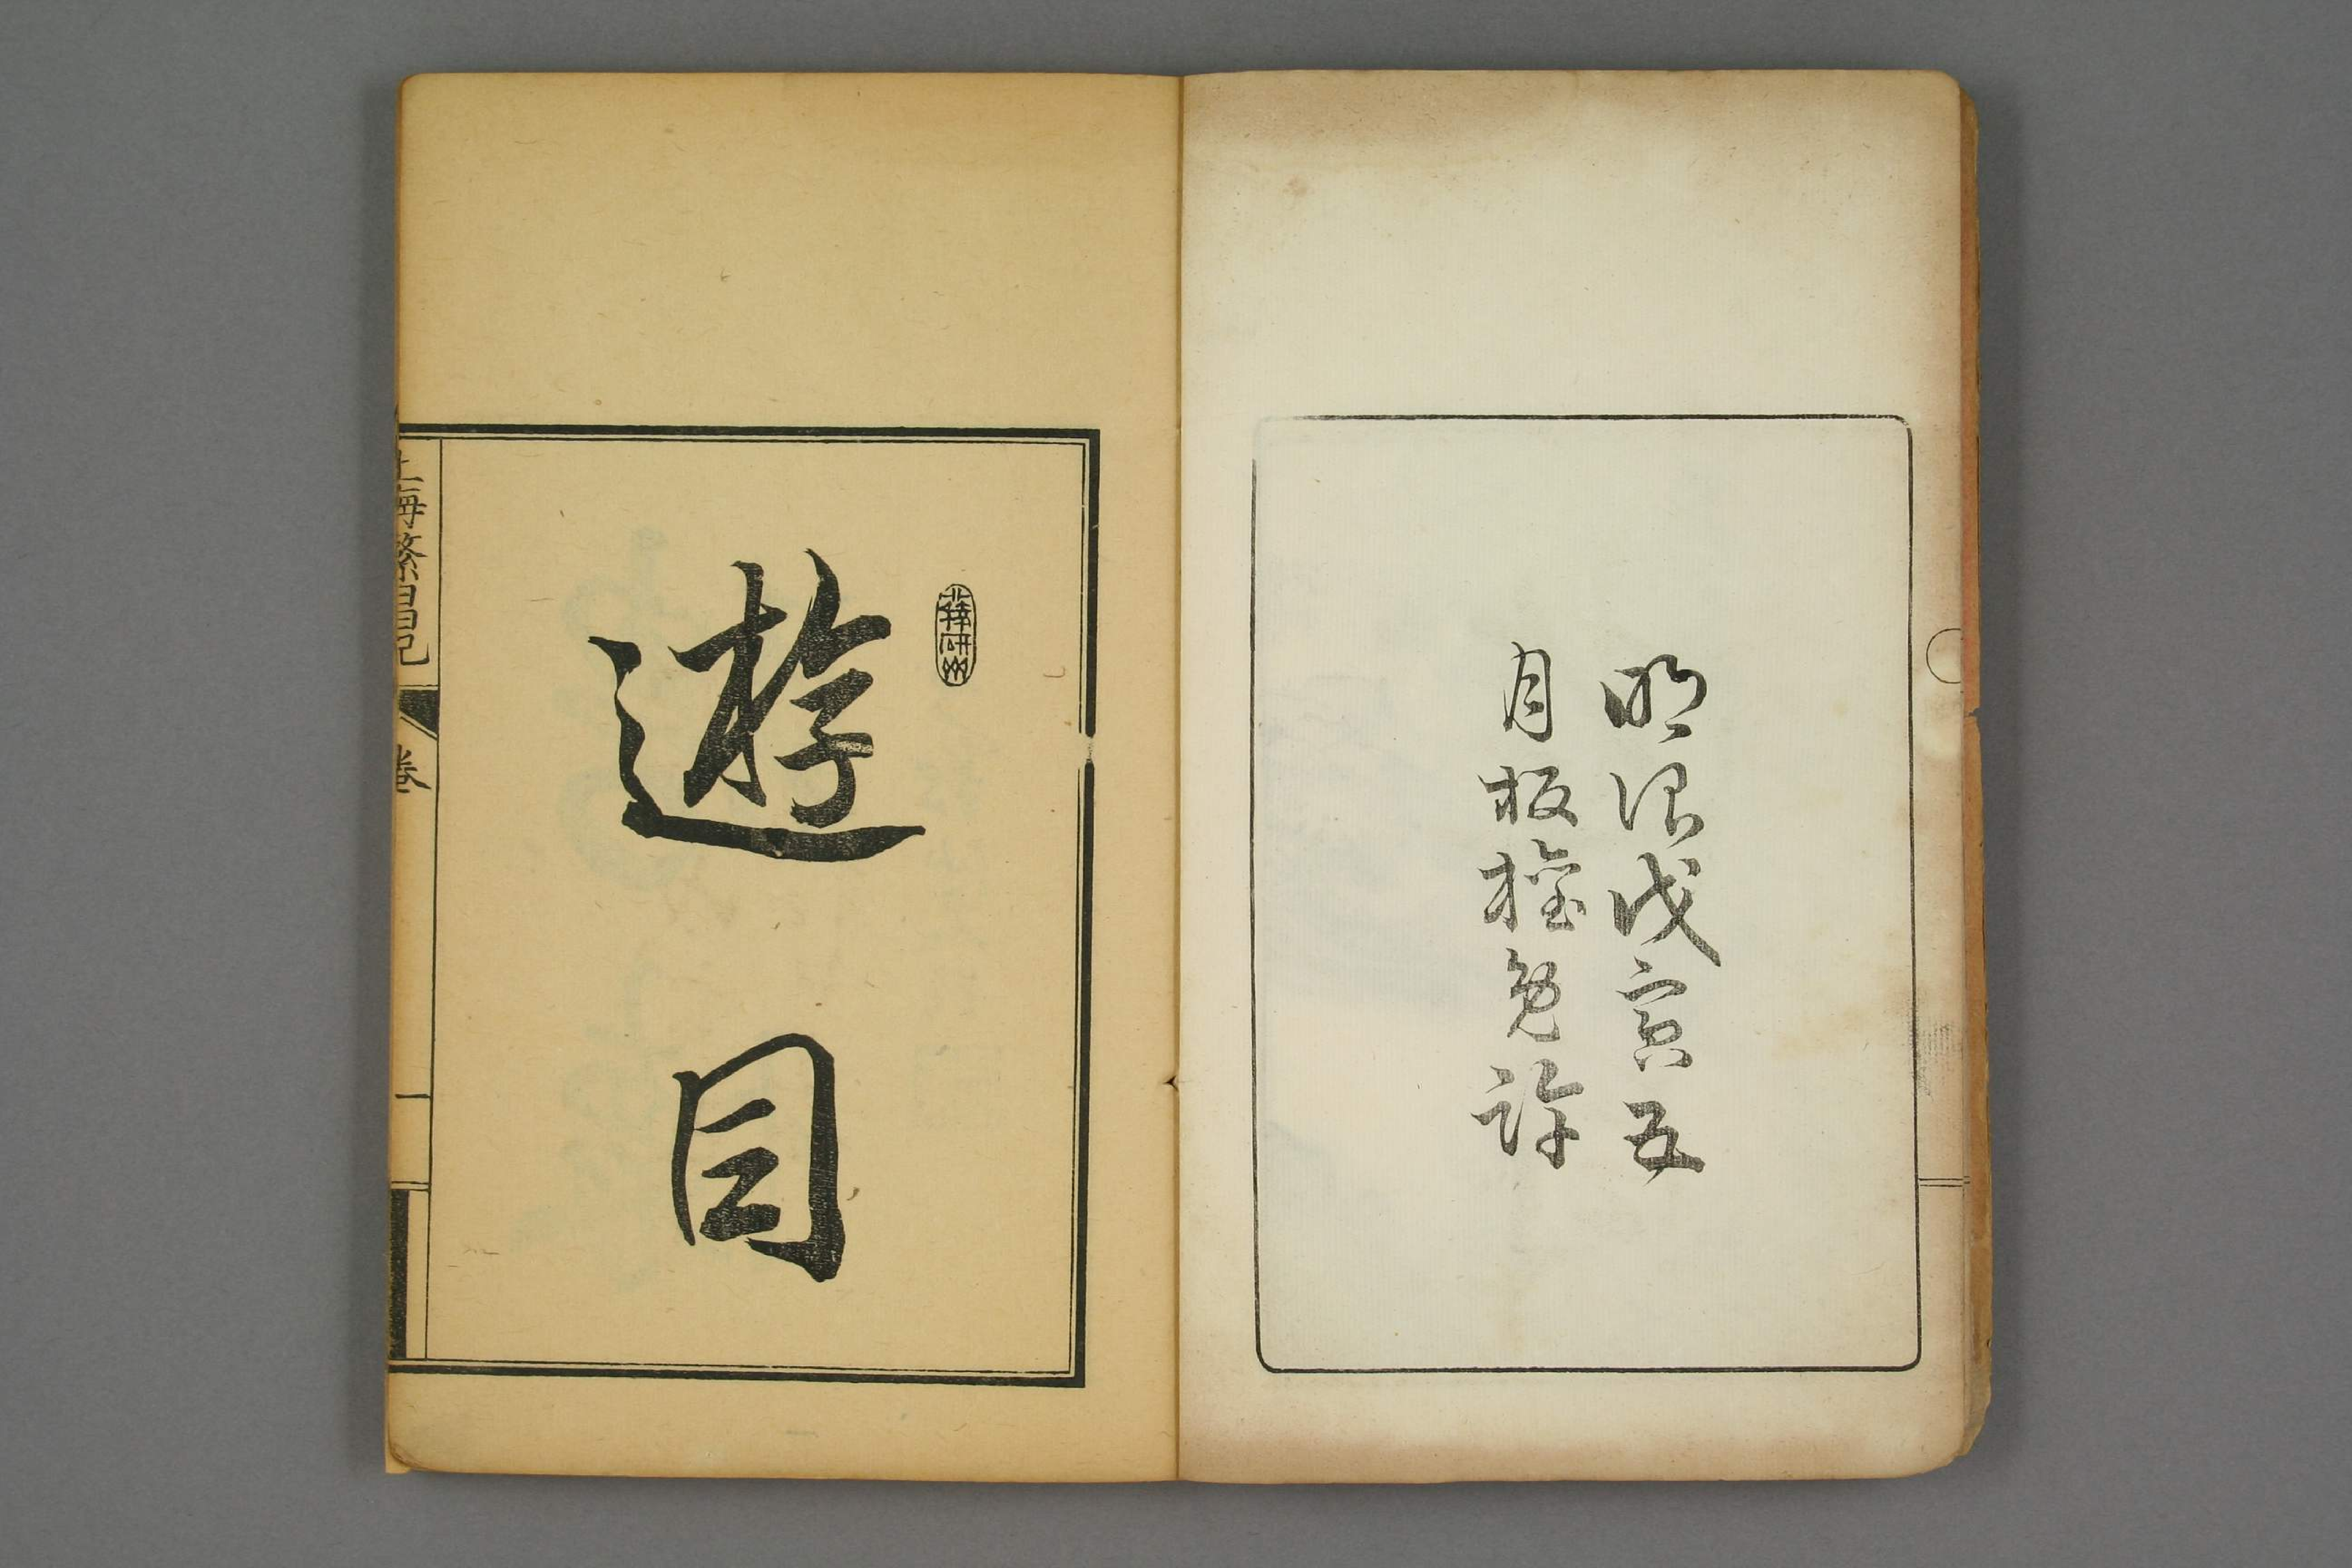 明治戊寅五
月板権免許
遊目
上海繁昌記
巻
一